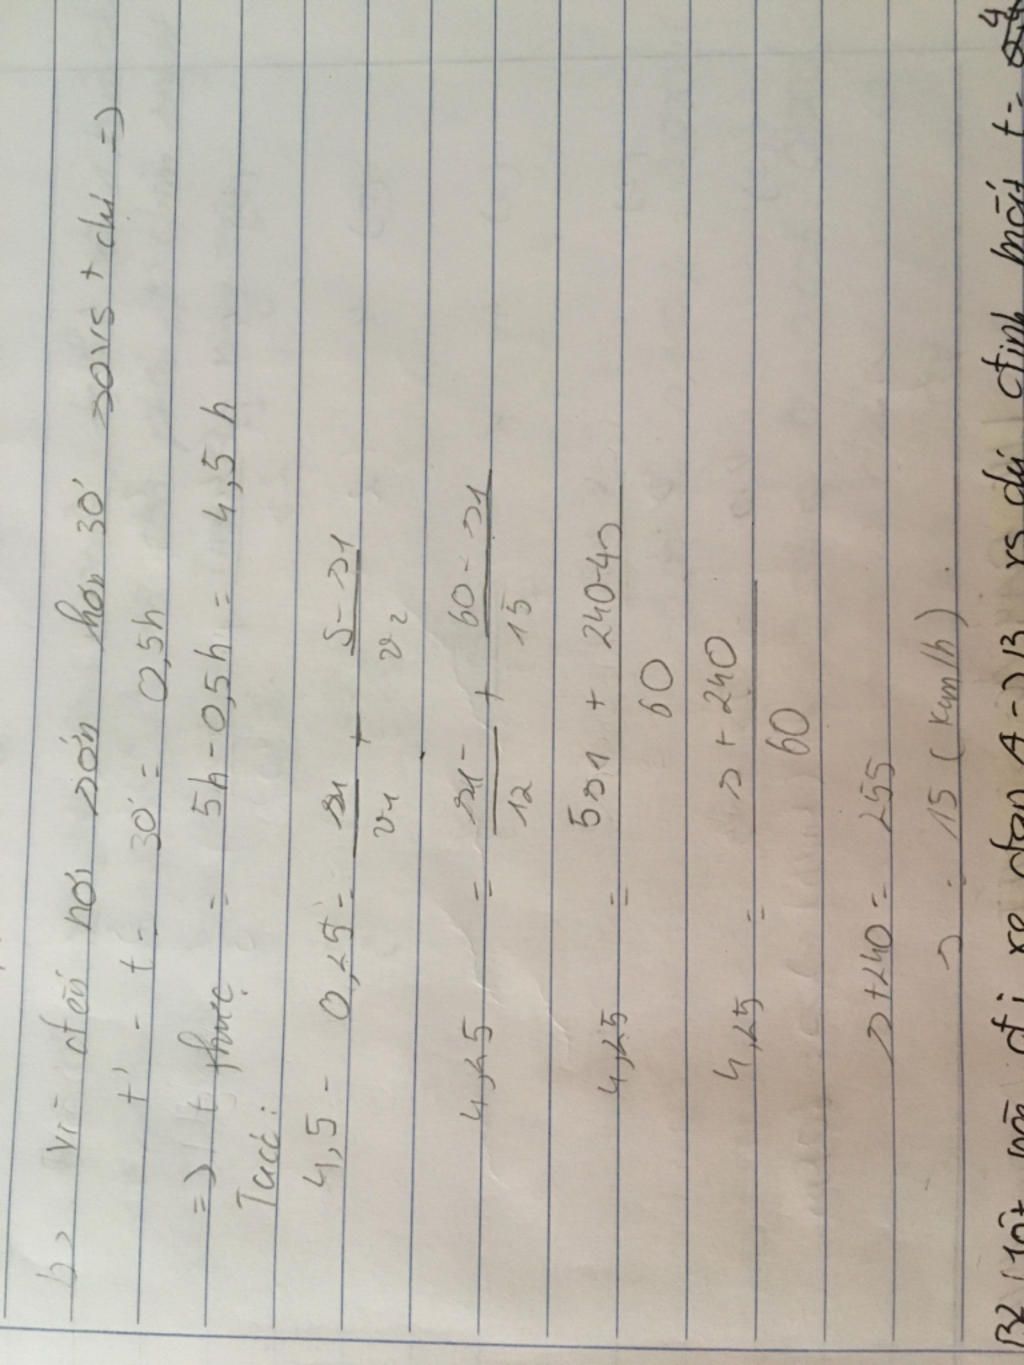 b, Vì đến nơi sớm hơn 30' so vs t dự =)
t' - t = 30' = 0,5h
=) t thực = 5h - 0,5h = 4,5 h
Ta có:
4,5 - 0,25 = s1/v1 + s-s1/v2
4,25 = s1/12 + 60-s1/15
4,25 = 5s1 + 240-4s/60
4,25 = s+240/60
s+240 = 255
s = 15 (km/h)
B2 Một đi xe đạp A -> B vs dự định mất t = 4